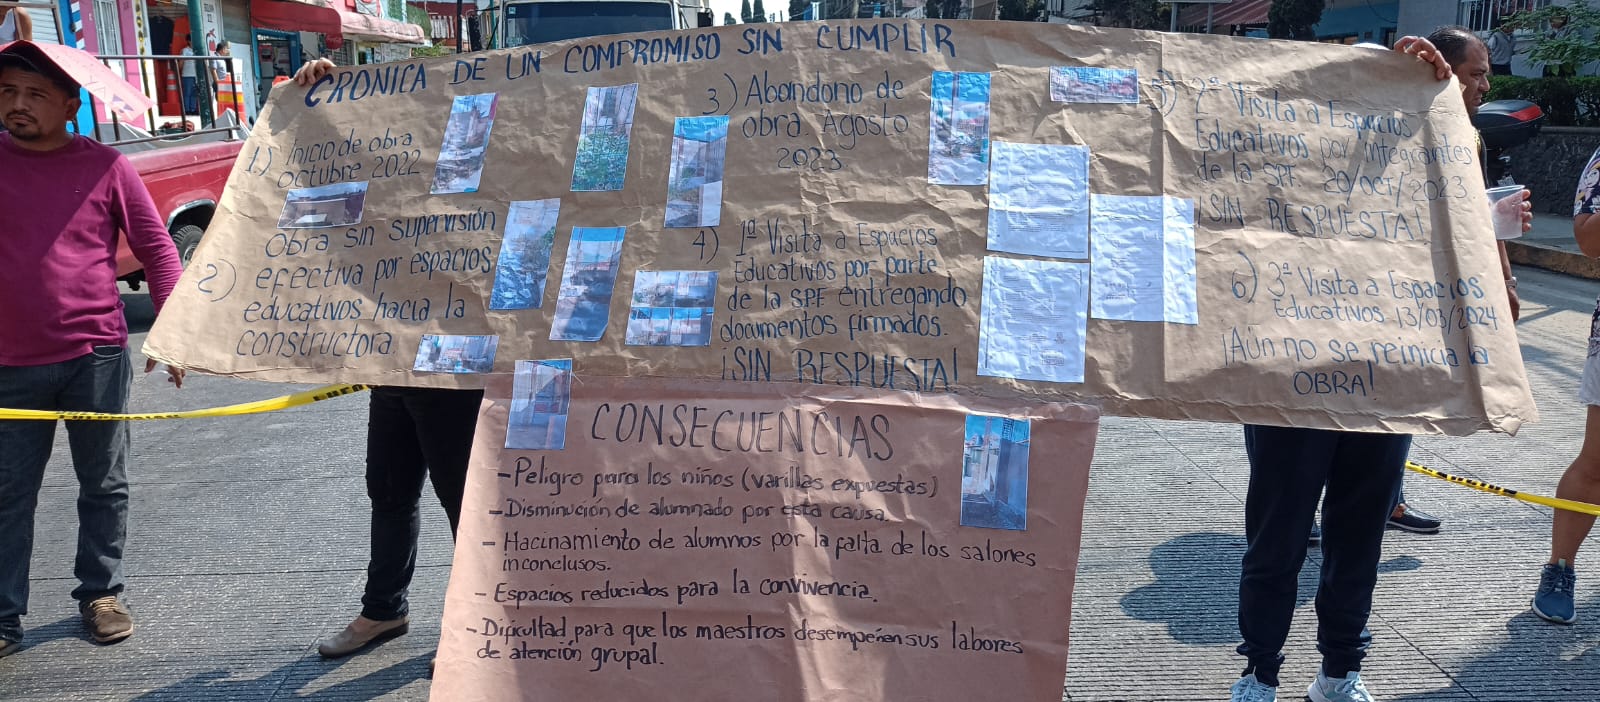 CRONICA DE UN COMPROMISO SIN CUMPLIR
1.) Inicio de obra
octubre 2022
2) Obra sin supervisión
efectiva por espacios
educativos hacia la
constructora.
3) Abandono de
obra. Agosto
2023
4) 1ª Visita a Espacios
Educativos por parte
de la SPF entregando
documentos firmados.
¡SIN RESPUESTA!
5) 2ª Visita a Espacios
Educativos por integrantes
de la SPF. 20/oct/2023
¡SIN RESPUESTA!
6) 3ª Visita a Espacios
Educativos. 13/03/2024
¡Aún no se reinicia la
OBRA!
CONSECUENCIAS
-Peligro para los niños (varillas expuestas)
-Disminución de alumnado por esta causa.
- Hacinamiento de alumnos por la falta de los salones
inconclusos.
- Espacios reducidos para la convivencia.
-Dificultad para que los maestros desempeñen sus labores
de atención grupal.